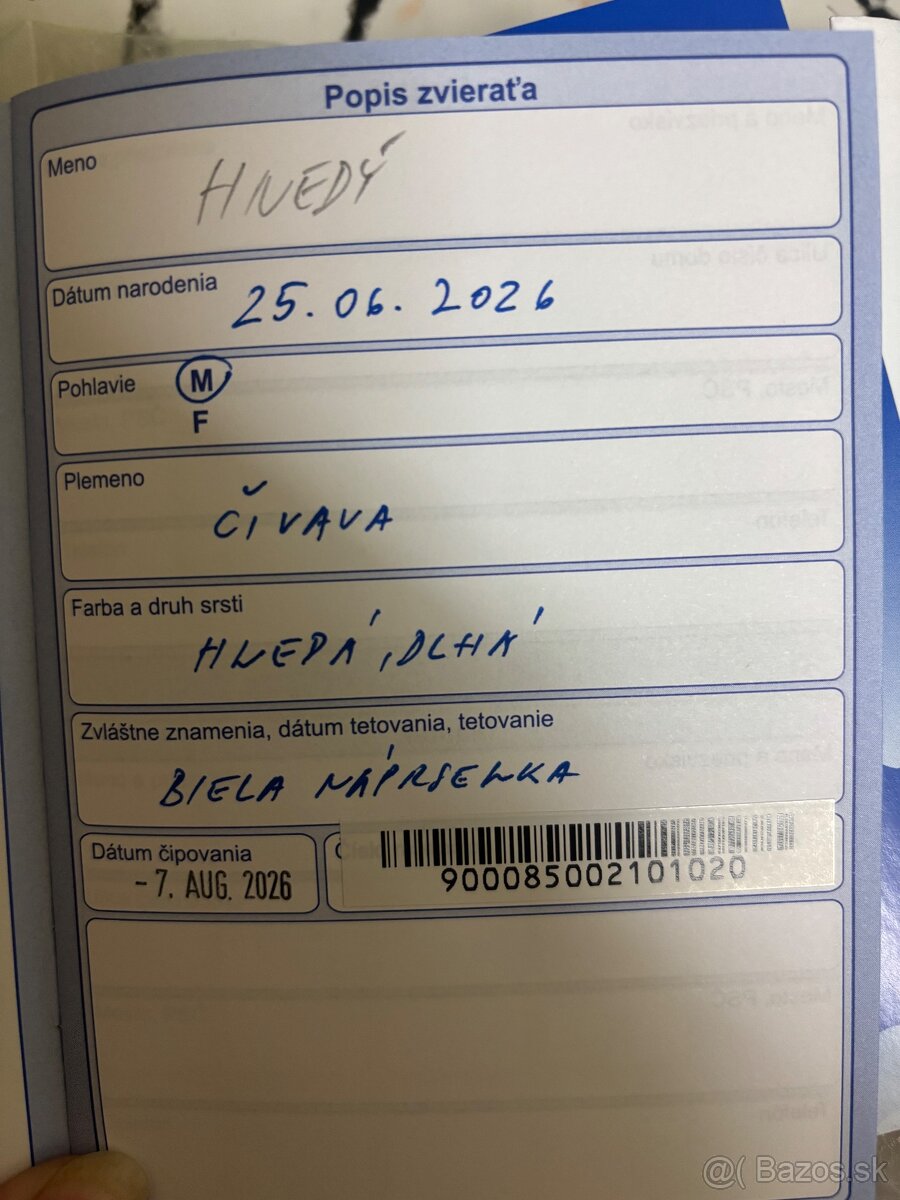 Popis zvieraťa
Meno
HNEDÝ
Dátum narodenia
25. 06. 2026
Pohlavie
M
F
Plemeno
ČIVAVA
Farba a druh srsti
HNEDÁ, DLHÁ
Zvláštne znamenia, dátum tetovania, tetovanie
BIELA NÁPRSENKA
Dátum čipovania
-7. AUG. 2026
900085002101020
@( Bazos.sk